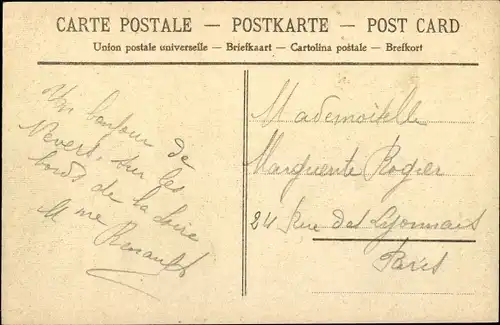 CARTE POSTALE — POSTKARTE — POST CARD
Union postale universelle — Briefkaart — Cartolina postale — Brefkort
Un bonjour de
Nevers, sur les
bords de la Loire
Mme Renault
Mademoiselle
Marguerite Rogier
24 Rue des Lyonnais
Paris